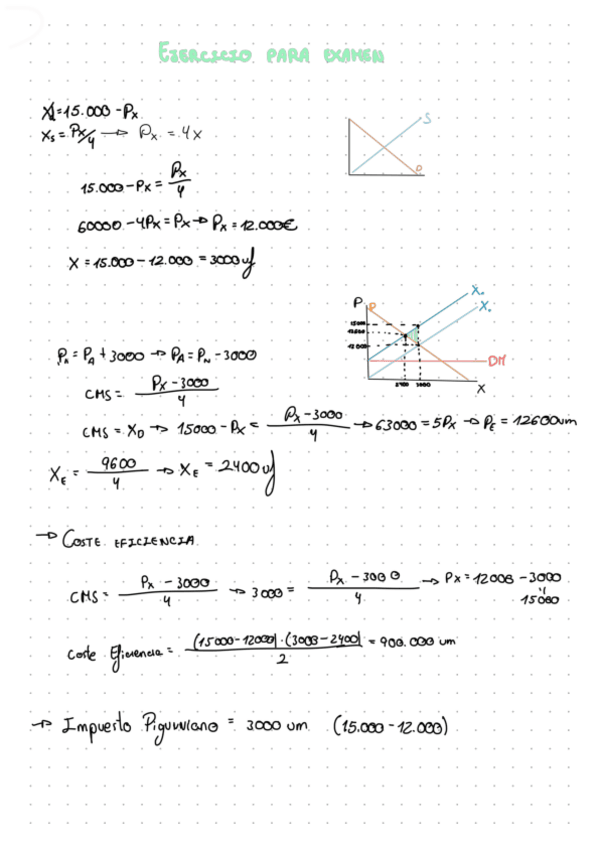 EJERCICIO PARA EXAMEN
Xd = 15.000 - Px
Xs = Px/4 → Px = 4x
S
D
15.000 - Px = Px/4
60000 - 4Px = Px → Px = 12.000€
X = 15.000 - 12.000 = 3000 uf
P
D
X.
X.
15000
12600
12000
DM
2400 3000
X
PN = PA + 3000 → PA = PN - 3000
CMS = Px - 3000 / 4
CMS = XD → 15000 - Px = Px - 3000 / 4 → 63000 = 5Px → PE = 12600um
XE = 9600 / 4 → XE = 2400 uf
→ COSTE EFICIENCIA
CMS = Px - 3000 / 4 → 3000 = Px - 3000 / 4 → Px = 12000 - 3000
15000
Coste Eficiencia = (15000-12000)·(3000-2400) / 2 = 900.000 um
→ Impuesto Piguviano = 3000 um (15.000 - 12.000)